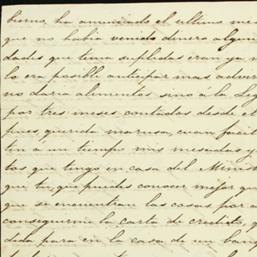 bierno, ha anunciado el ultimo me
que no habia venido dinero algun
dades que tenia suplidas eran ya m
lo era posible anticipar mas adver
no daria alimentos sino a la Leg
por tres meses contados desde el
pues, querida marusa, cuan facil
ten a un tiempo mis mesadas y
tos que tengo en casa del Minist
que tu, que puedes conocer mejor qu
que se encuentran las cosas por a
conseguirme la carta de credito, q
dida para en la casa de un banq